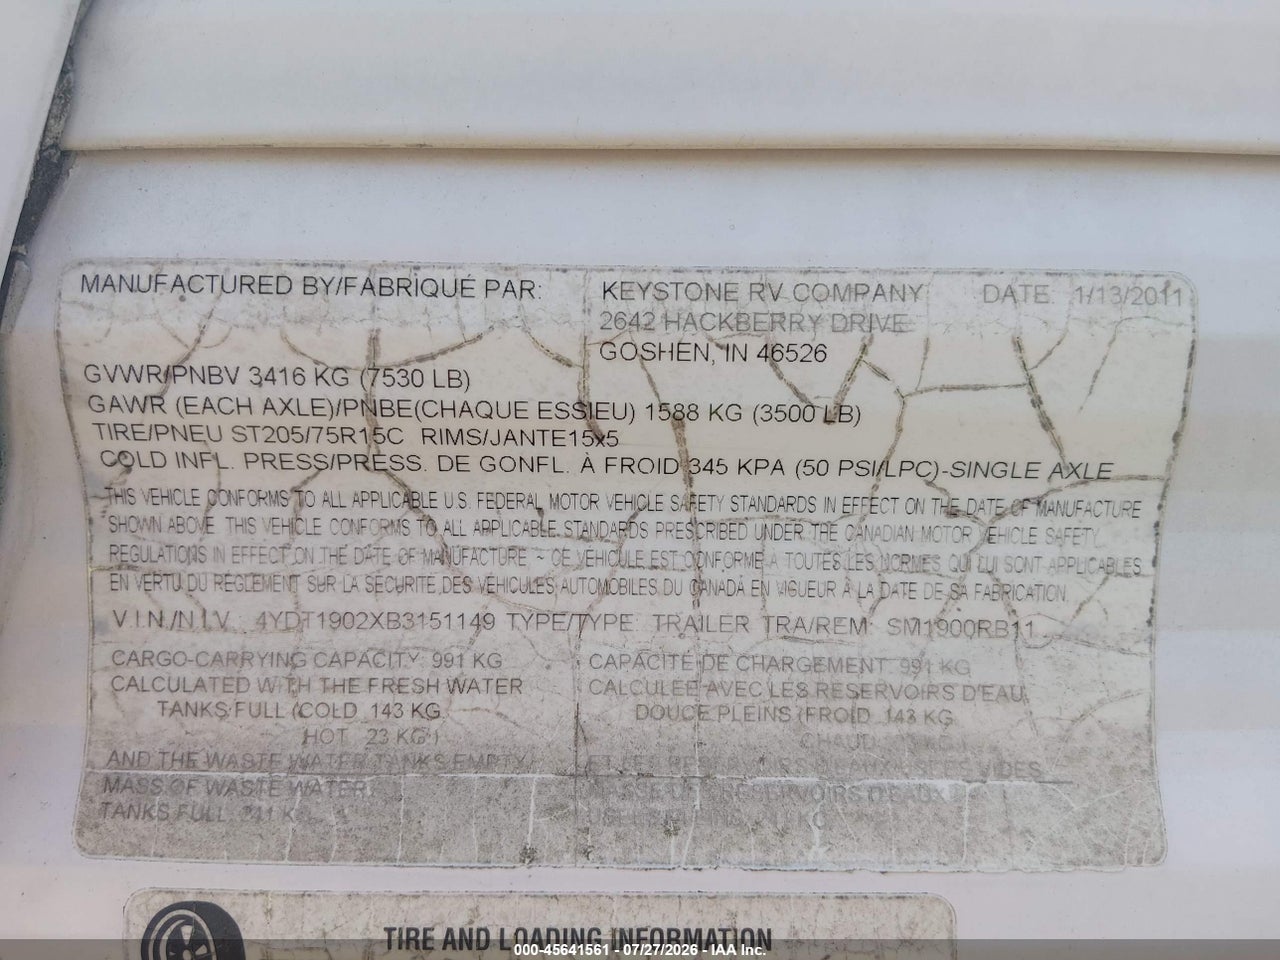 MANUFACTURED BY/FABRIQUÉ PAR: KEYSTONE RV COMPANY DATE 1/13/2011
2642 HACKBERRY DRIVE
GOSHEN, IN 46526
GVWR/PNBV 3416 KG (7530 LB)
GAWR (EACH AXLE)/PNBE(CHAQUE ESSIEU) 1588 KG (3500 LB)
TIRE/PNEU ST205/75R15C RIMS/JANTE15x5
COLD INFL. PRESS/PRESS. DE GONFL. À FROID 345 KPA (50 PSI/LPC)-SINGLE AXLE
THIS VEHICLE CONFORMS TO ALL APPLICABLE U.S. FEDERAL MOTOR VEHICLE SAFETY STANDARDS IN EFFECT ON THE DATE OF MANUFACTURE
SHOWN ABOVE. THIS VEHICLE CONFORMS TO ALL APPLICABLE STANDARDS PRESCRIBED UNDER THE CANADIAN MOTOR VEHICLE SAFETY
REGULATIONS IN EFFECT ON THE DATE OF MANUFACTURE - CE VÉHICULE EST CONFORME A TOUTES LES NORMES QUI LUI SONT APPLICABLES
EN VERTU DU REGLEMENT SUR LA SÉCURITÉ DES VÉHICULES AUTOMOBILES DU CANADA EN VIGUEUR À LA DATE DE SA FABRICATION
V.I.N./N.I.V.: 4YDT1902XB3151149 TYPE/TYPE: TRAILER TRA/REM SM1900RB11
CARGO-CARRYING CAPACITY: 991 KG
CALCULATED WITH THE FRESH WATER
TANKS FULL (COLD 143 KG
HOT 23 KG)
AND THE WASTE WATER TANKS EMPTY
MASS OF WASTE WATER
TANKS FULL:
CAPACITÉ DE CHARGEMENT: 991 KG
CALCULÉE AVEC LES RESERVOIRS D'EAU
DOUCE PLEINS (FROID 143 KG
CHAUD
ET LES RESERVOIRS D'EAUX USEES VIDES
TIRE AND LOADING INFORMATION
000-45641561 - 07/27/2026 - IAA Inc.